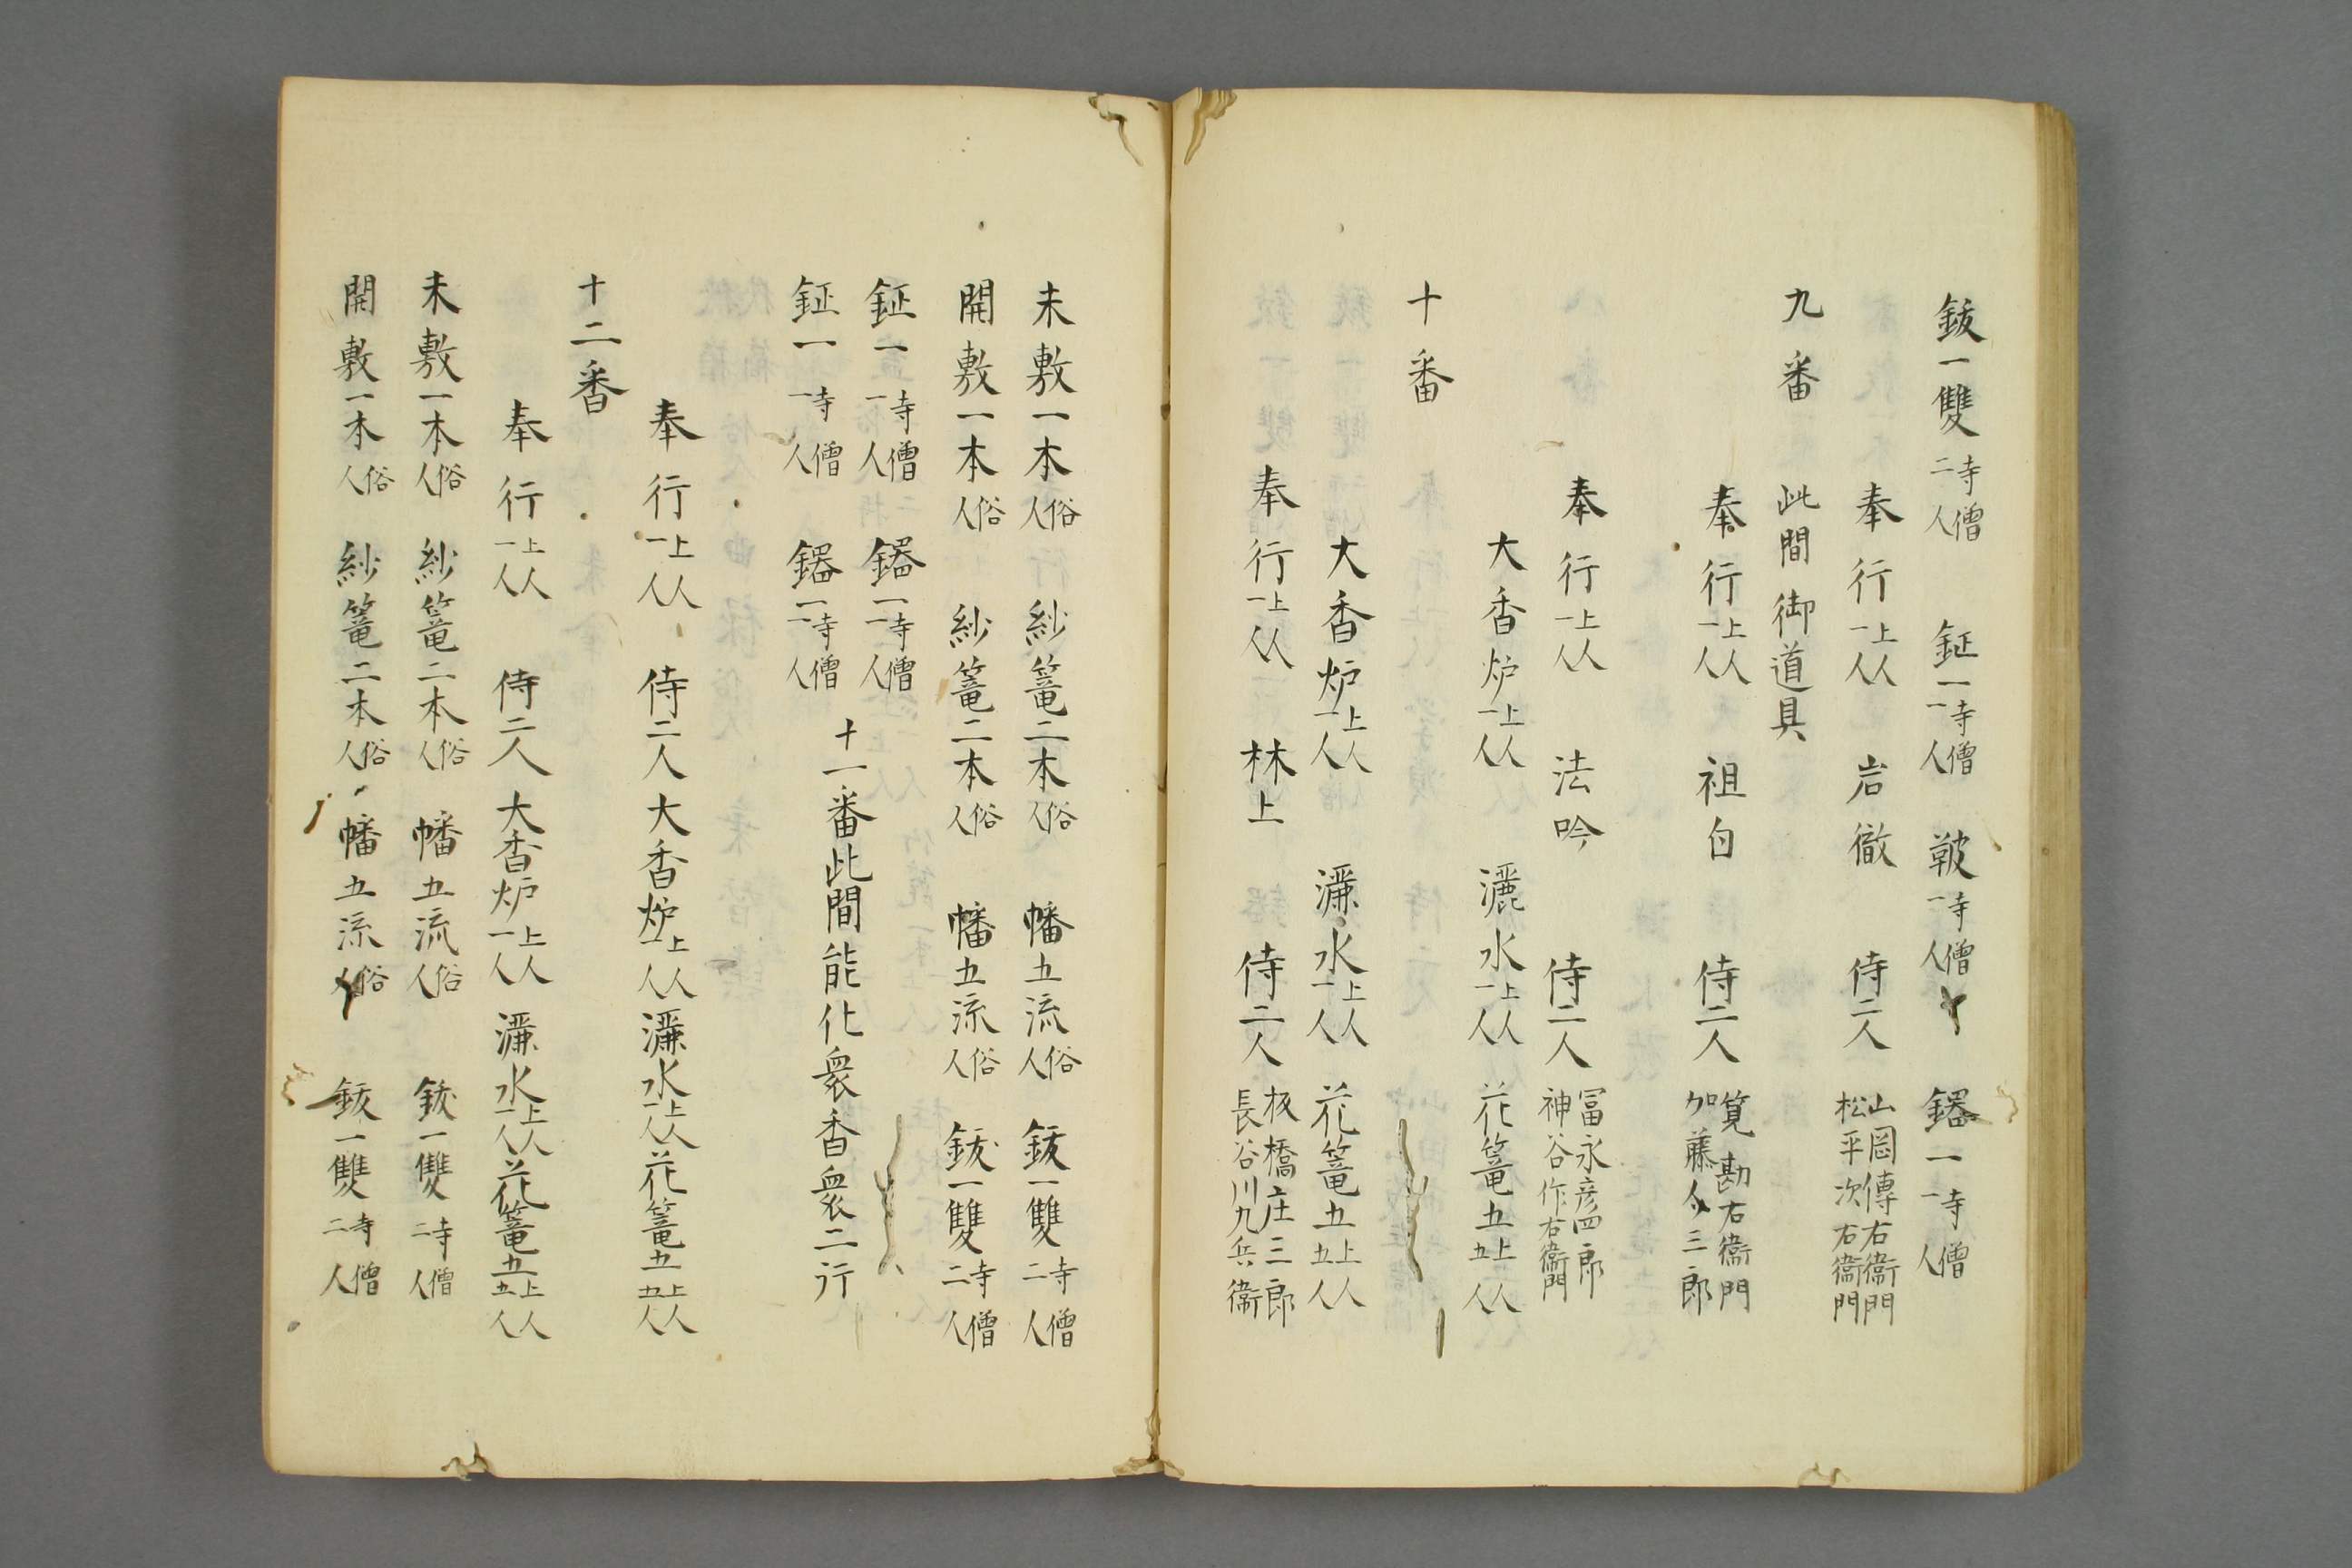 鈸一雙 寺僧二人 鉦一 寺僧一人 鞁 寺僧一人 鐂一 寺僧一人
奉行 上人一人 岩徹 侍二人 山岡傳右衞門 松平次右衞門
九番 此間御道具
奉行 上人一人 祖白 侍二人 筧勘右衞門 加藤久三郎
奉行 上人一人 法吟 侍二人 冨永彦四郎 神谷作右衞門
大香炉 上人一人 灑水 上人一人 花篭五 上人五人
十番
大香炉 上人一人 灑水 上人一人 花篭五 上人五人
奉行 上人一人 林上 侍二人 板橋庄三郎 長谷川九兵衞
未敷一本 俗人 紗篭二本 俗人 幡五流 俗人 鈸一雙 寺僧二人
開敷一本 俗人 紗篭二本 俗人 幡五流 俗人 鈸一雙 寺僧二人
鉦一 寺僧一人 鐃一 寺僧一人
鉦一 寺僧一人 鐃一 寺僧一人
十一番此間能化衆香衆二行
奉行 上人一人 侍二人 大香炉 上人一人 灑水 上人一人 花篭五 上人五人
十二番
奉行 上人一人 侍二人 大香炉 上人一人 灑水 上人一人 花篭五 上人五人
未敷一本 俗人 紗篭二本 俗人 幡五流 俗人 鈸一雙 寺僧二人
開敷一本 俗人 紗篭二本 俗人 幡五流 俗人 鈸一雙 寺僧二人